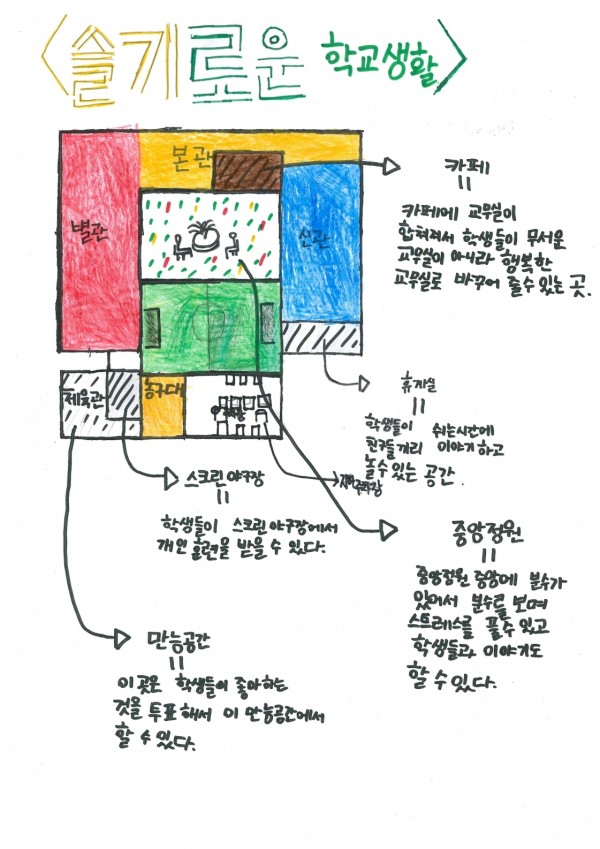 <슬기로운 학교생활>
본관
별관
신관
카페
=
카페에 교무실이
합쳐져서 학생들이 무서운
교무실이 아니라 행복한
교무실로 바꾸어 줄수 있는 곳.
체육관
농구대
휴게실
=
학생들이 쉬는시간에
친구들끼리 이야기 하고
놀 수 있는 공간.
스크린 야구장
=
학생들이 스크린 야구장에서
개인 훈련을 받을 수 있다.
중앙정원
=
중앙정원 중앙에 분수가
있어서 분수를 보며
스트레스를 풀 수 있고
학생들과 이야기도
할 수 있다.
만능공간
=
이 곳은 학생들이 좋아하는
것을 투표해서 이 만능공간에서
할 수 있다.